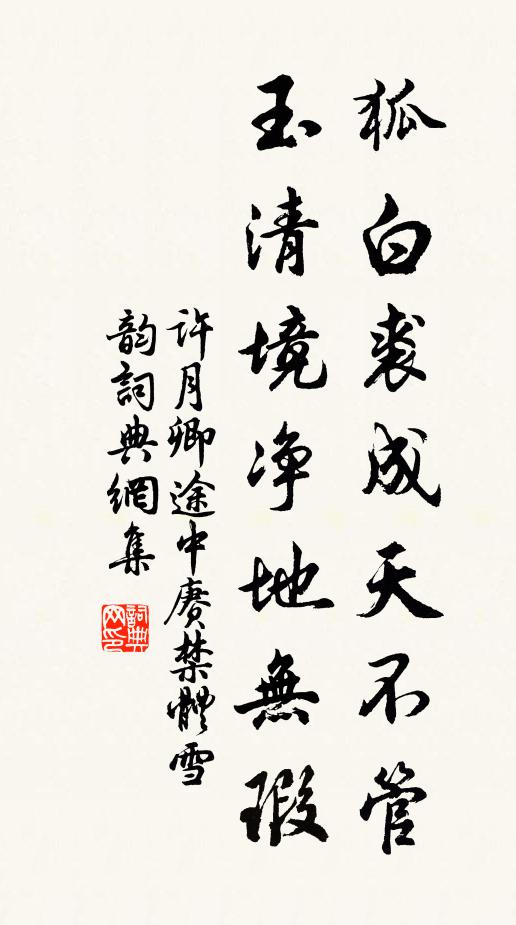 狐白裘成天不管
玉清境净地無瑕
许月卿途中賡禁體雪
韵詞典網集
詞典网印